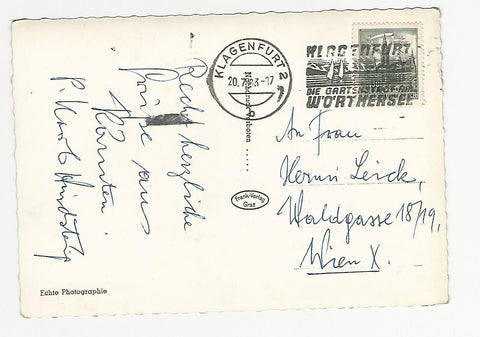 Recht herzliche
Grüße aus
Kärnten.
KLAGENFURT 2
20.7.63-17
b
KLAGENFURT
DIE GARTENSTADT AM
WÖRTHERSEE
Frank-Verlag
Graz
An Frau
Hermi Leick,
Waldgasse 18/19,
Wien X.
Echte Photographie